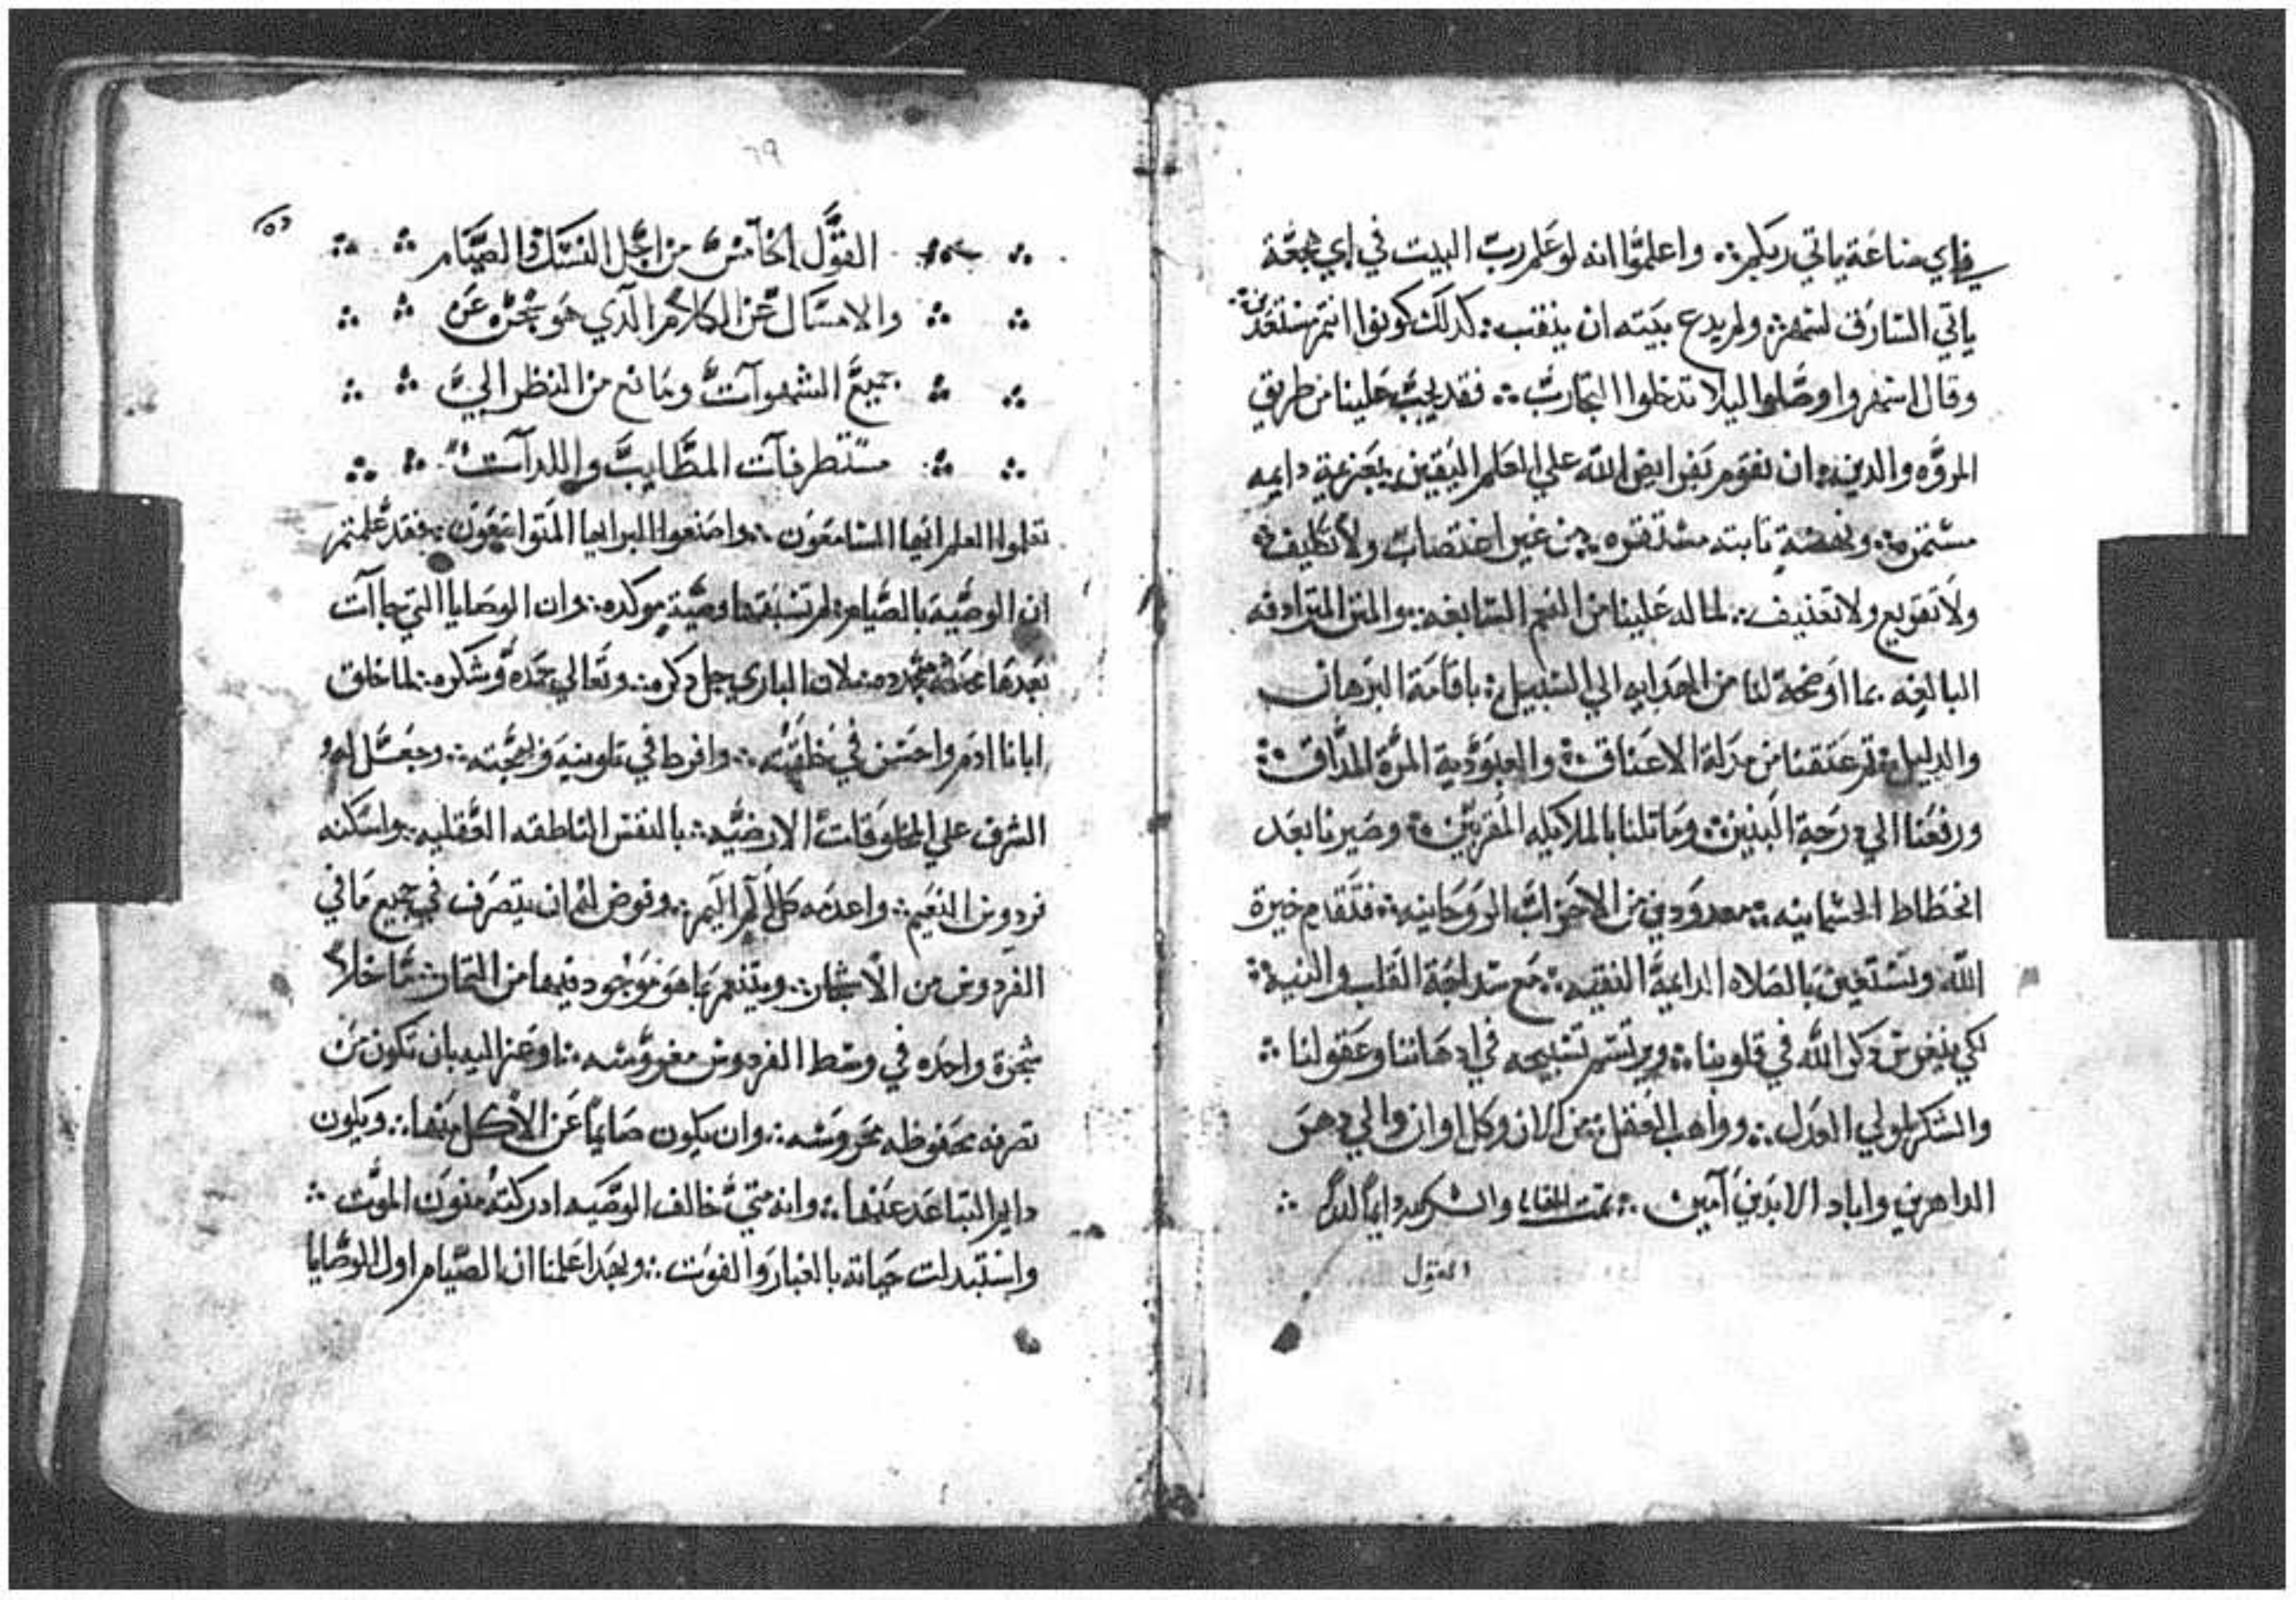 في اي ساعة ياتي ربكم ؞ واعلموا انه لو علم رب البيت في اي هجعة
ياتي السارق لسهر ؞ ولم يدع بيته ان ينقب ؞ كدلك كونوا انتم مستعدين ؞
وقال اسهروا وصلوا ليلا تدخلوا التجارب ؞ فقد يجب علينا من طريق
المروه والدين ؞ ان نقوم بفرايض الله علي العلم اليقين ؞ بعزيمة دايمه
مستمره ؞ ونهضة تابته مستقره ؞ من غير اغتصاب ولا تكليف ؞
ولا تقويع ولا تعنيف ؞ لما له علينا من النعم السابغه ؞ والمنن المترادفه
البالغه بما اوضحه لنا من الهدايه الي السبيل ؞ باقامة البرهان
والدليل ؞ تم عتقنا من مدلة الاعناق ؞ والعبودية المرة المداق ؞
ورفعنا الي درجة البنين ؞ وماتلنا بالملايكه المقربين ؞ وصيرنا بعد
انحطاط الجسمانيه ؞ معدودين من الاحزاب الروحانيه ؞ فنقدم خيرة
الله ونستعين بالصلاه الدايمة النقيه ؞ مع سداجة القلب والنية ؞
لكي ينغرس دكر الله في قلوبنا ؞ ويرتسم تسبيحه في ادهاننا وعقولنا ؞
والشكر لمولي العدل ؞ وواهب العقل ؞ من الان وكل اوان والي دهر
الداهرين واباد الابدين آمين ؞ تمت المقاله والشكر لله دايما ابدا ؞
القول
٦٩
القول الخامس من اجل النسك والصيام ؞
والامساك عن الكلام الدي هو يحجزه عن
جميع الشهوآت ومانع من النظر الي
مستطرفات المطايب واللدآت ؞
تعلوا العلم ايها السامعون ؞ واصنعوا البر ايها المتواضعون ؞ فقد علمتم
ان الوصيه بالصيام ؞ لم تسبقها وصية موكده ؞ وان الوصايا التي جاآت
بعدها مجدده ؞ لان الباري جل دكره ؞ وتعالي حمده وشكره ؞ لما خلق
ابانا ادم واحسن في خلقته ؞ وافرط في تلوينه وبهجته ؞ وجعل له
الشرف علي المخلوقات الارضيه ؞ بالنفس الناطقه العقليه ؞ واسكنه
فردوس النعيم ؞ واعدمه كل الم اليم ؞ وفوض له ان يتصرف في جميع ما في
الفردوس من الاشجار ؞ ويتنعم بما هو موجود فيها من التمار ؞ ما خلا
شجرة واحده في وسط الفردوس مغروسه ؞ اوعز اليه بان تكون من
تصرفه محفوظه محروسه ؞ وان يكون صايما عن الاكل منها ؞ ويكون
دايم التباعد عنها ؞ وانه متي خالف الوصيه ادركته منون الموت ؞
واستبدلت حياته بالغبار والفوت ؞ وبهدا علمنا ان الصيام اول الوصايا